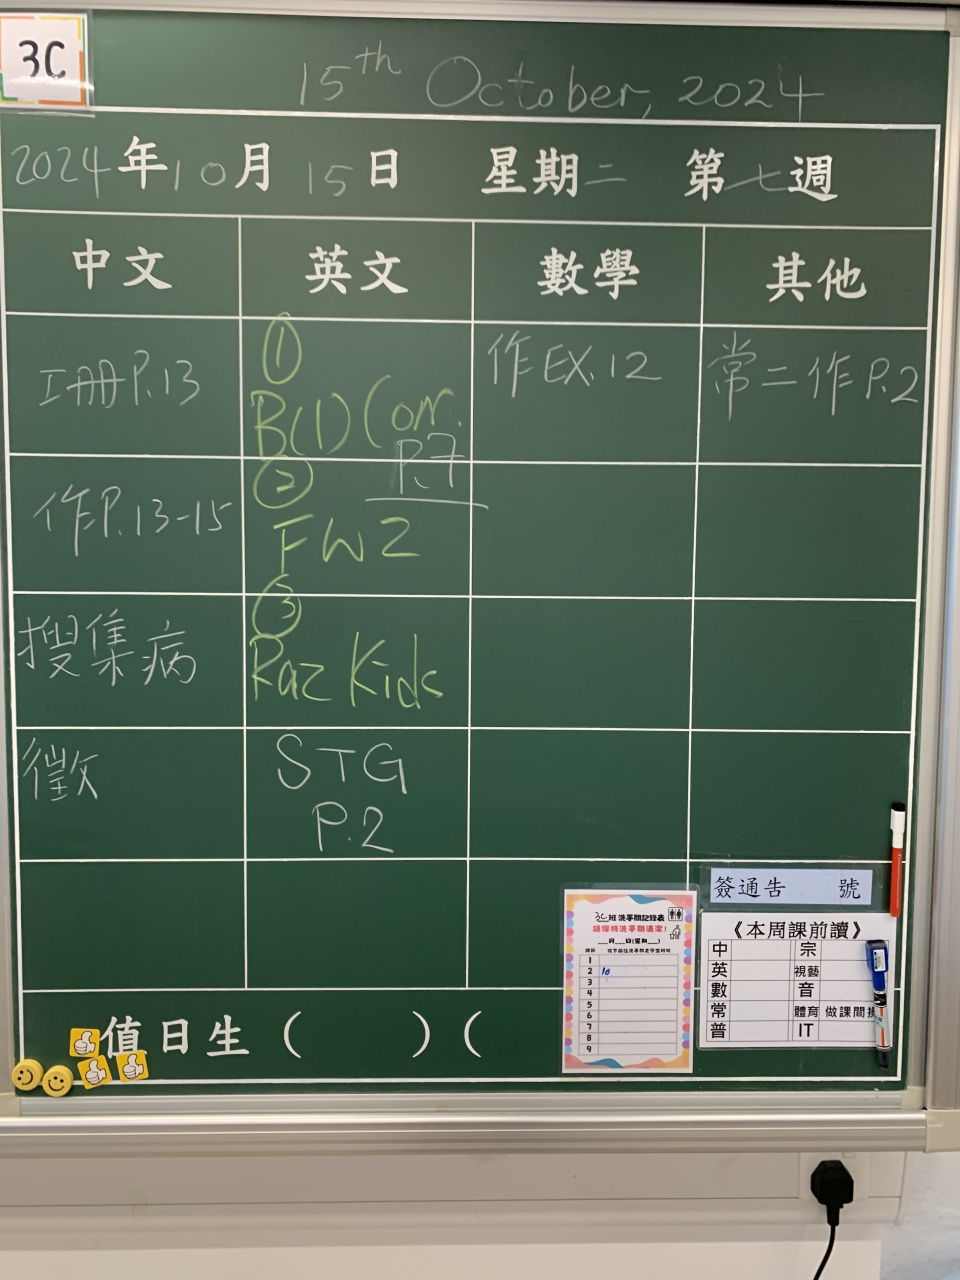 3C
15th October, 2024
2024年10月15日 星期二 第七週
中文 英文 數學 其他
工冊P.13
①
B(1) Corr.
P.7
作EX.12
常二作P.2
作P.13-15
②
FW2
搜集病
③
Raz Kids
徵
STG
P.2
簽通告 號
3C班洗手間記錄表
請保持洗手間清潔!
___月___日(星期___)
1
2 10
3
4
5
6
7
8
9
《本周課前讀》
中 宗
英 視藝
數 音
常 體育 做課間操
普 IT
值日生( )(